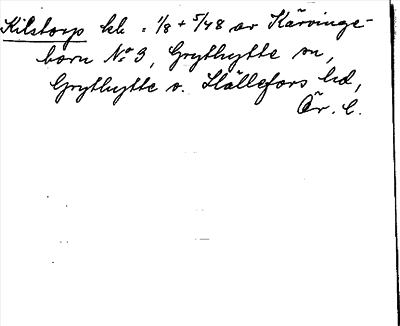 Kilstorp kb = 1/8 + 5/48 av Kärvinge-
born No 3, Grythytte sn,
Grythytte o. Hällefors hd,
Ör. l.